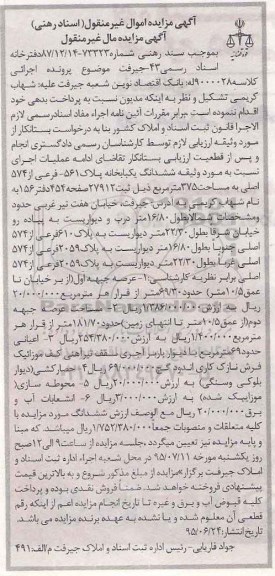 آگهی مزایده اموال غیر منقول (اسناد رهنی)
آگهی مزایده مال غیر منقول
بموجب سند رهنی شماره ۷۳۳۲۳-۸۷/۱۲/۱۴ دفترخانه
اسناد رسمی ۴۳-جیرفت موضوع پرونده اجرائی
کلاسه ۹۰۰۰۰۲۸ له: بانک اقتصاد نوین شعبه جیرفت علیه: شهاب
کریمی تشکیل و نظر به اینکه مدیون نسبت به پرداخت بدهی خود
اقدام ننموده است برابر مقررات آئین نامه اجراء مفاد اسناد رسمی لازم
الاجرا قانون ثبت اسناد و املاک کشور بنا به درخواست بستانکار از
مورد وثیقه ارزیابی لازم توسط کارشناسان رسمی دادگستری انجام
و پس از قطعیت ارزیابی بستانکار تقاضای ادامه عملیات اجرای
نسبت به مورد وثیقه ششدانگ یکبابخانه پلاک ۵۶۱- فرعی از ۵۷۴
اصلی به مساحت ۳۷۵ مترمربع ذیل ثبت ۲۷۹۱۲ صفحه ۴۵۴ دفتر ۱۵۶ به
نام شهاب کریمی به آدرس جیرفت، خیابان هفت تیر غربی حدود
ومشخصات شمالا بطول ۱۶/۸۰ متر درب و دیواریست به پیاده رو
خیابان شرقا بطول ۲۲/۳۰ متر دیواریست به پلاک ۶۱۰ فرعی از ۵۷۴
اصلی جنوبا بطول ۱۶/۸۰ متر دیواریست به پلاک ۲۰۵۹ فرعی از ۵۷۴
اصلی غربا بطول ۲۲/۳۰ متر دیواریست به پلاک ۲۰۵۹ فرعی از ۵۷۴
اصلی برابر نظریه کارشناسی ۱- عرصه جبهه اول (از بر خیابان تا
عمق ۱۰/۵ متر) حدود ۶۹/۳۰ متر از قرار هر مترمربع ۲۰/۰۰۰/۰۰۰
ریال به ارزش ۱/۳۸۶/۰۰۰/۰۰۰ ریال ۲- مساحت عرصه جبهه
دوم (از عمق ۱۰/۵ متر تا انتهای زمین) حدود ۱۸۱/۷۰ متر از قرار هر
مترمربع ۱/۴۰۰/۰۰۰ ریال به ارزش ۲۵۴/۳۸۰/۰۰۰ ریال ۳- اعیانی
حدود ۶۹ مترمربع با دیوار باربر آجری سقف تیرآهن کف موزائیک
فرش نازک کاری اندود گچ ریال ۴- حصارکشی (دیوار
بلوکی وسنگی) به ارزش ۲۰/۰۰۰/۰۰۰ ریال ۵- محوطه سازی (
موزاییک شده) به ارزش ۳/۰۰۰/۰۰۰ ریال ۶- انشعابات آب و
برق ۲۰/۰۰۰/۰۰۰ ریال مع الوصف ارزش ششدانگ مورد مزایده با
کلیه متعلقات و منصوبات جمعا ۱/۷۵۲/۳۸۰/۰۰۰ ریال میباشد. که مبنا
و پایه مزایده نیز تعیین میگردد جلسه مزایده از ساعت ۹ الی ۱۲ صبح
روز یکشنبه مورخه ۹۵/۰۷/۱۱ در محل شعبه اجراء اداره ثبت اسناد و
املاک جیرفت برگزار مزایده از مبلغ مذکور شروع و به بالاترین قیمت
پیشنهادی فروخته خواهد شد. ضمنا فروش نقدی بوده و پرداخت
کلیه قبوض آب و برق و غیره تا تاریخ انجام مزایده اعم از اینکه رقم
قطعی آن معلوم شده و یا نشده به عهده برنده مزایده می باشد.
تاریخ انتشار: ۹۵/۰۶/۲۴
جواد فاریابی - رئیس اداره ثبت اسناد و املاک جیرفت م/الف: ۴۹۱